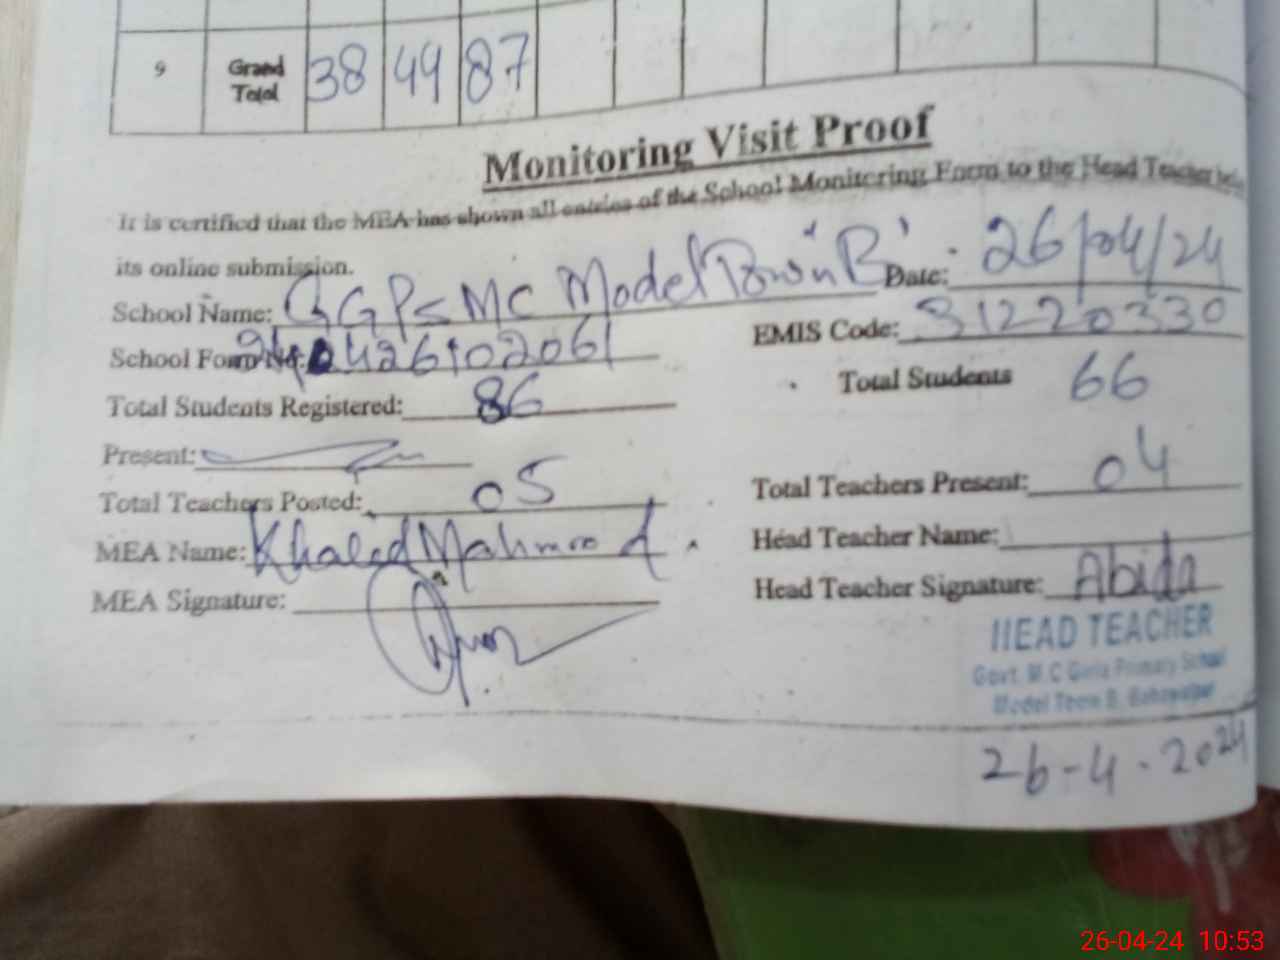 9 Grand Total 38 49 87
Monitoring Visit Proof
It is certified that the MEA has shown all entries of the School Monitoring Form to the Head Teacher
its online submission.
School Name: GGPS MC Model Town 'B' Date: 26/04/24
School Form No: EMIS Code: 31220330
Total Students Registered: 86 Total Students 66
Present:
Total Teachers Posted: 05 Total Teachers Present: 04
MEA Name: Khaled Mahmood Head Teacher Name:
MEA Signature: Head Teacher Signature: Abida
HEAD TEACHER
Govt. M.C Girls Primary School
Model Town B. Bahawalpur
26-4-2024
26-04-24 10:53